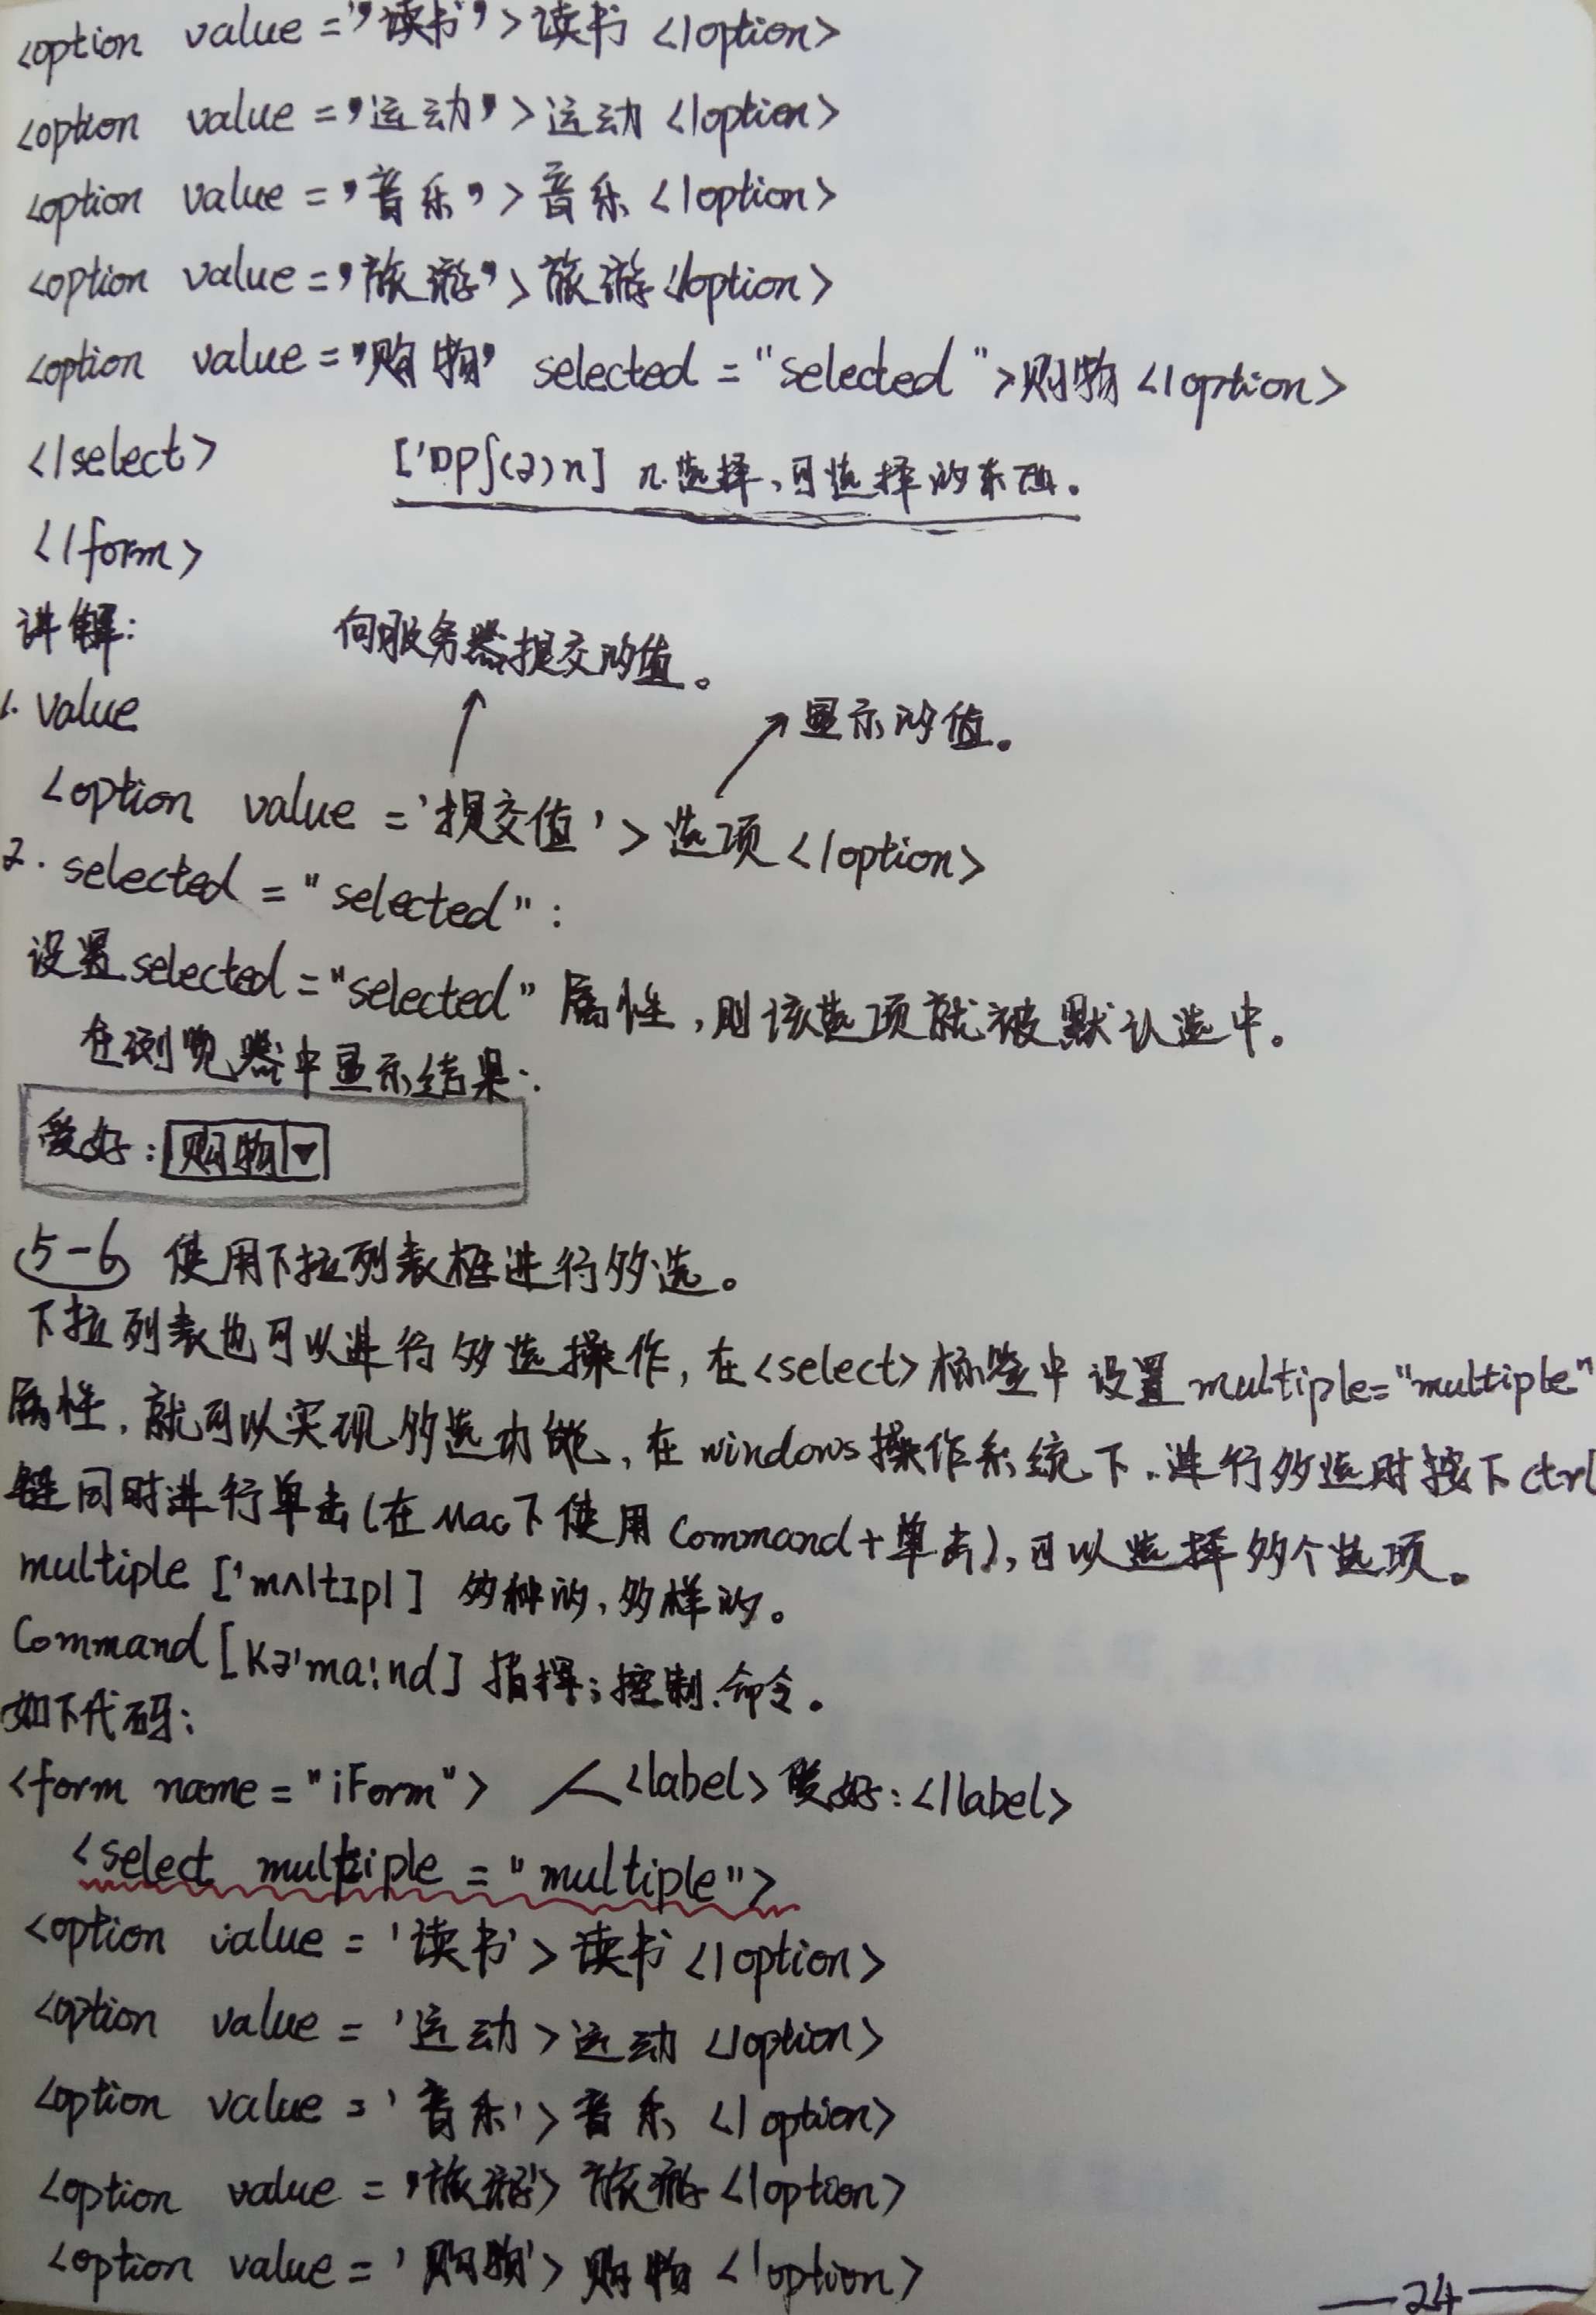 <option value='读书'>读书</option>
<option value='运动'>运动</option>
<option value='音乐'>音乐</option>
<option value='旅游'>旅游</option>
<option value='购物' selected="selected">购物</option>
</select> ['ɒpʃ(ə)n] n.选择,可选择的东西。
</form>
讲解: 向服务器提交的值。
1. value 显示的值。
<option value='提交值'>选项</option>
2. selected="selected":
设置selected="selected"属性,则该选项就被默认选中。
在浏览器中显示结果:
爱好:购物
5-6 使用下拉列表框进行多选。
下拉列表也可以进行多选操作,在<select>标签中设置multiple="multiple"
属性,就可以实现多选功能,在windows操作系统下,进行多选时按下ctrl
键同时进行单击(在Mac下使用Command+单击),可以选择多个选项。
multiple ['mʌltɪpl] 多种的,多样的。
Command [kə'ma:nd] 指挥;控制.命令。
如下代码:
<form name="iForm"> <label>爱好:</label>
<select multiple="multiple">
<option value='读书'>读书</option>
<option value='运动>运动</option>
<option value='音乐'>音乐</option>
<option value='旅游'>旅游</option>
<option value='购物'>购物</option>
—24—